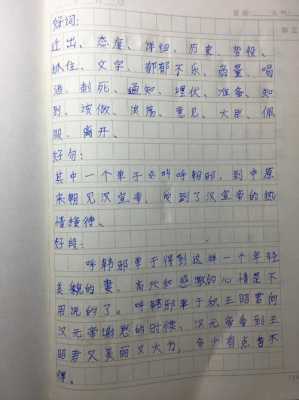 好词:
让出、态度、详细、历史、曾经、
抓住、文字、郁郁不乐、商量、喝
酒、刺死、通知、埋伏、准备、知
到、读做、决荡、意见、大臣、佩
服、离开、
好句:
其中一个单于名叫呼韩邪,到中原
来朝见汉宣帝,受到了汉宣帝的热
情接待。
好段:
呼韩邪单于得到这样一个年轻
美貌的妻,高兴和感激的心情是不
用说的了。呼韩邪单于和王昭君向
汉元帝谢恩的时候,汉元帝看到王
昭君又美丽又大方,多少有点舍不
得。